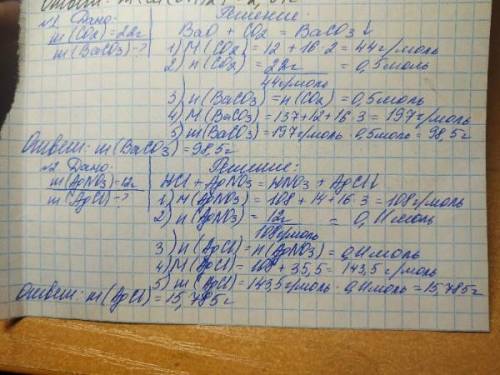 Ответ:
№1 Дано:
m(CO2)=22г
m(BaCO3)-?
Решение:
BaO + CO2 = BaCO3↓
1) M(CO2) = 12 + 16·2 = 44г/моль
2) n(CO2) = 22г / 44г/моль = 0,5моль
3) n(BaCO3) = n(CO2) = 0,5моль
4) M(BaCO3) = 137+12+16·3 = 197г/моль
5) m(BaCO3) = 197г/моль · 0,5моль = 98,5г
Ответ: m(BaCO3) = 98,5г
№2 Дано:
m(AgNO3)=12г
m(AgCl)-?
Решение:
HCl + AgNO3 = HNO3 + AgCl↓
1) M(AgNO3) = 108 + 14 + 16·3 = 108г/моль
2) n(AgNO3) = 12г / 108г/моль = 0,11моль
3) n(AgCl) = n(AgNO3) = 0,11моль
4) M(AgCl) = 108 + 35,5 = 143,5г/моль
5) m(AgCl) = 143,5г/моль · 0,11моль = 15,785г
Ответ: m(AgCl) = 15,785г